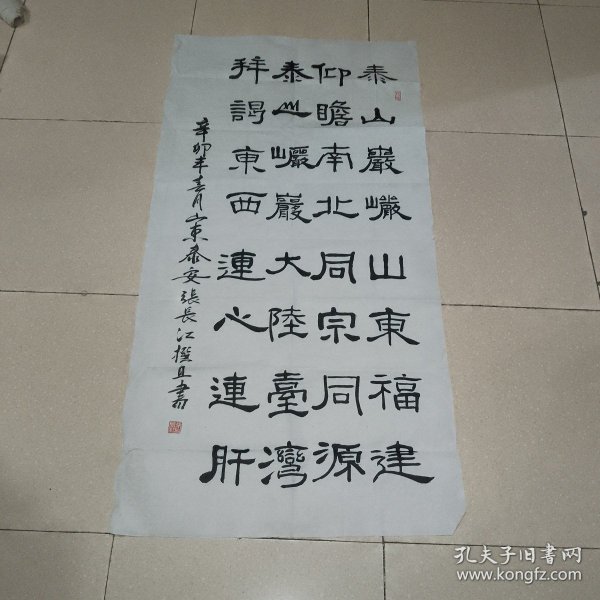 泰山巖巗山東福建
仰瞻南北同宗同源
泰山巗巖大陸臺灣
拜謁東西連心連肝
辛卯年春月山東泰安張長江撰且書
孔夫子旧书网
www.kongfz.com